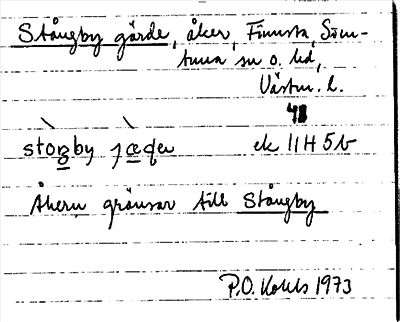 Stångby gärde, åker, Finnsta, Sim-
tuna sn o. hd,
Västm. l.
41
stoŋby jæde
ek 11H 5b
Åkern gränsar till Stångby
P.O. Kohls 1973